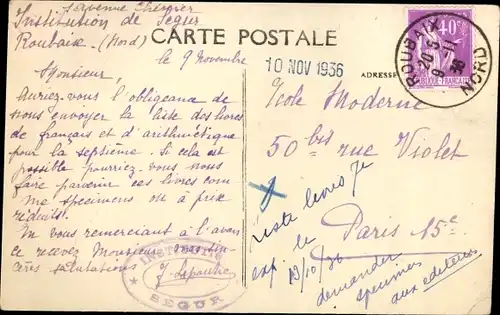 Institution de Segur
Roubaix - (Nord)
CARTE POSTALE
le 9 Novembre
10 NOV 1936
ADRESSE
40c
ROUBAIX
NORD
Monsieur,
Auriez-vous l'obligeance de
nous envoyer la liste des livres
de français et d'arithmétique
pour la septième. Si cela est
possible pourriez-vous nous
faire parvenir ces livres com
me specimens ou à prix
réduits.
En vous remerciant à l'avan
ce recevez Monsieur mes sin
cères salutations
SEGUR
Ecole Moderne
50 bis rue Violet
Paris 15e
Liste livres 7e
exp. le
19/10/36
demander
specimens
aux editeurs